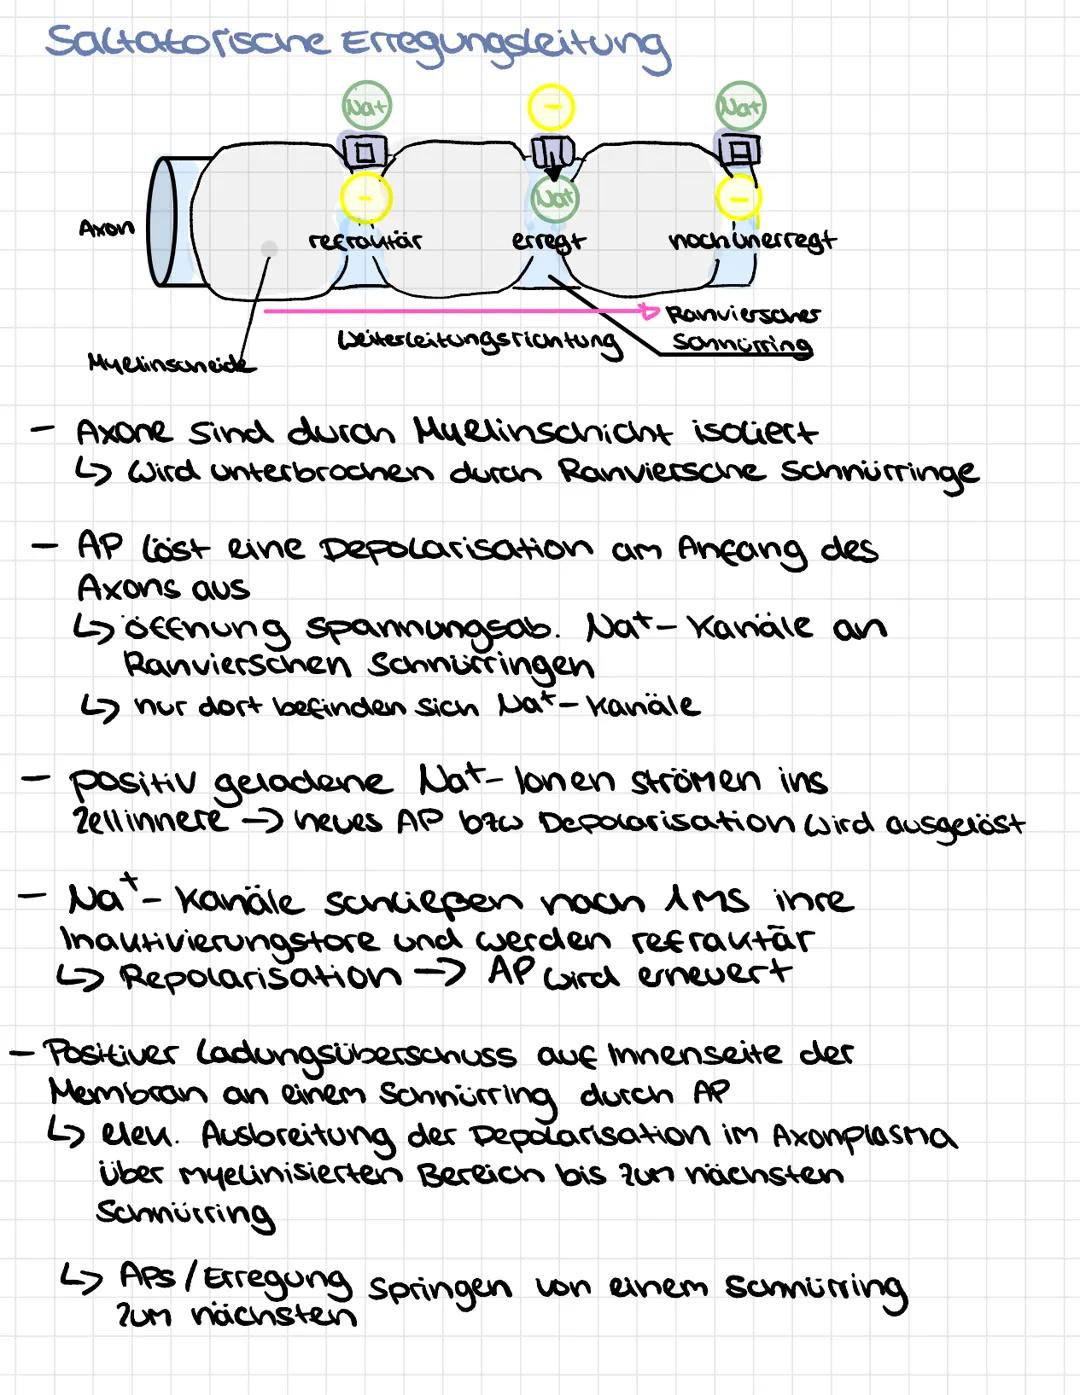 Saltatorische Erregungsleitung
Na+ − Na+
Axon
− Na+ −
refraktär erregt noch unerregt
Ranvierscher
Schnürring
Weiterleitungsrichtung
Myelinscheide
- Axone sind durch Myelinschicht isoliert
↳ Wird unterbrochen durch Ranviersche Schnürringe
- AP löst eine Depolarisation am Anfang des
Axons aus
↳ öffnung spannungsab. Na⁺-Kanäle an
Ranvierschen Schnürringen
↳ nur dort befinden sich Na⁺-Kanäle
- positiv geladene Na⁺-Ionen strömen ins
Zellinnere → neues AP bzw Depolarisation wird ausgelöst
- Na⁺-Kanäle schließen nach 1ms ihre
Inaktivierungstore und werden refraktär
↳ Repolarisation → AP wird erneuert
- Positiver Ladungsüberschuss auf Innenseite der
Membran an einem Schnürring durch AP
↳ elek. Ausbreitung der Depolarisation im Axonplasma
über myelinisierten Bereich bis zum nächsten
Schnürring
↳ APs/Erregung springen von einem Schnürring
zum nächsten